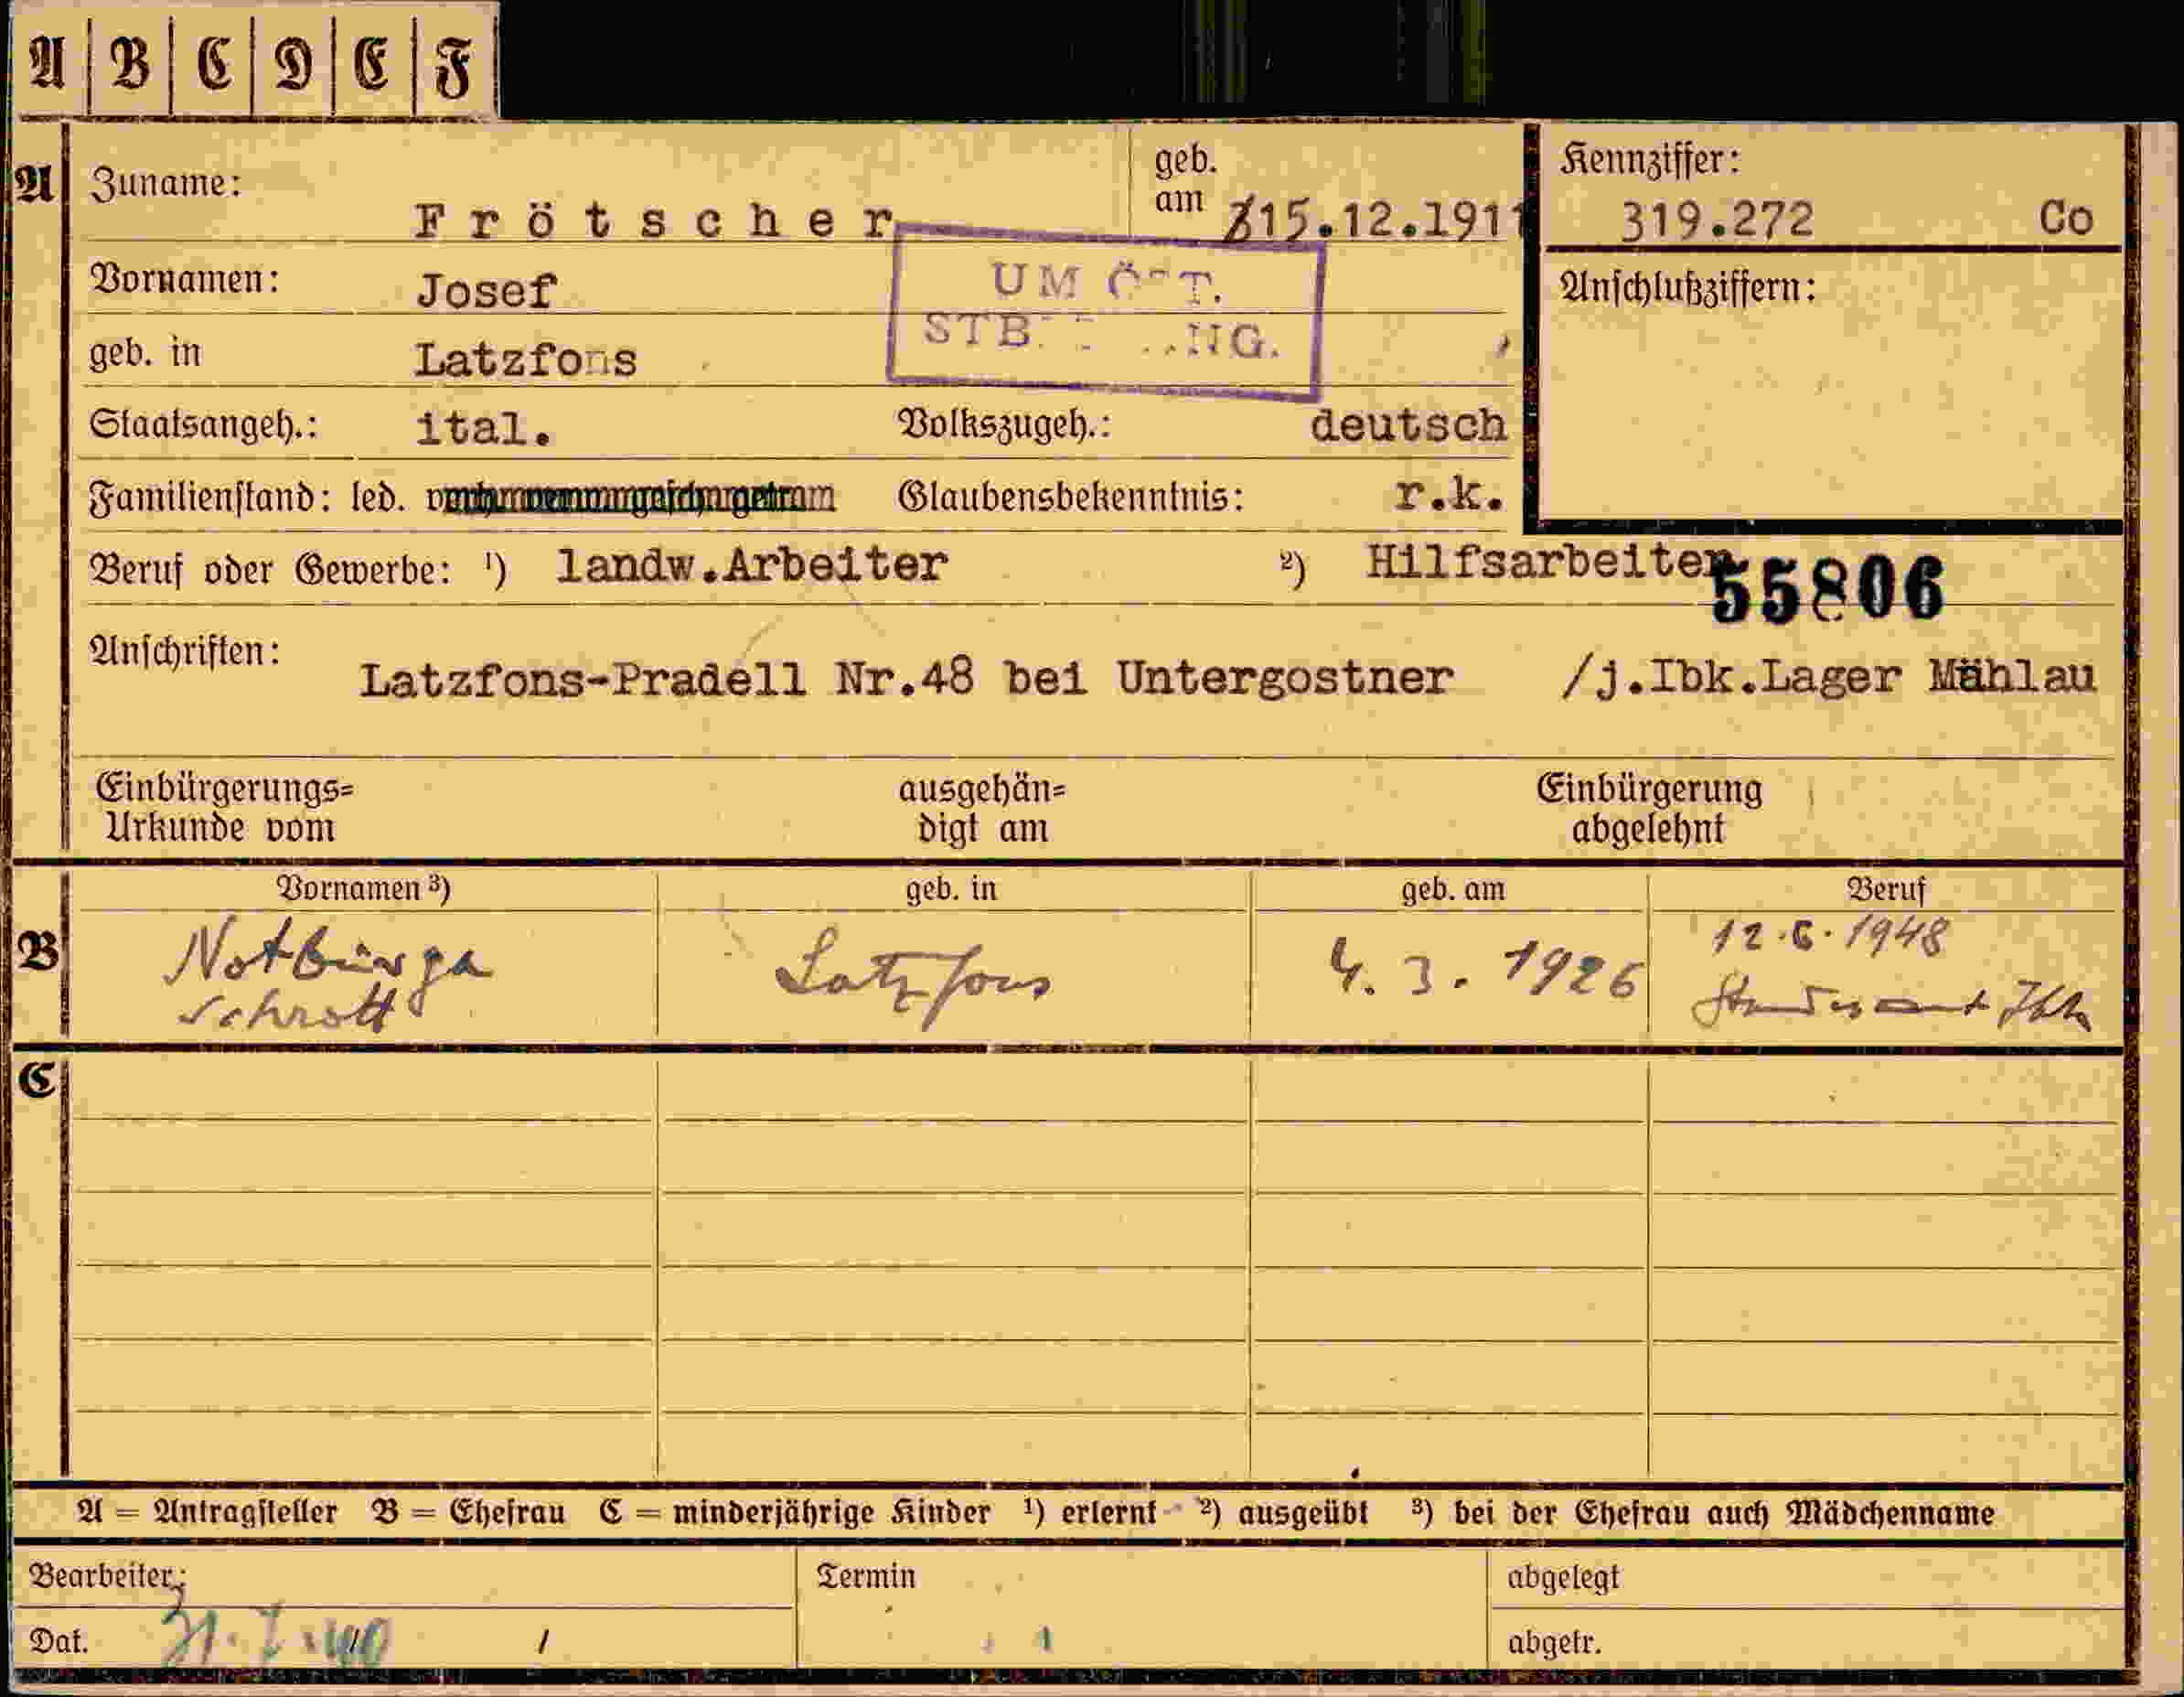 A B C D E F
A
Zuname: Frötscher geb. am 15.12.1911
Kennziffer: 319.272 Co
Vornamen: Josef
UM ÖST.
Anschlußziffern:
geb. in Latzfons
Staatsangeh.: ital. Volkszugeh.: deutsch
Familienstand: led. Glaubensbekenntnis: r.k.
Beruf oder Gewerbe: ¹) landw.Arbeiter ²) Hilfsarbeiter
55806
Anschriften:
Latzfons-Pradell Nr.48 bei Untergostner /j.Ibk.Lager Mühlau
Einbürgerungs= ausgehän= Einbürgerung
Urkunde vom digt am abgelehnt
B
Vornamen ³) geb. in geb. am Beruf
Notburga Latzfons 4. 3. 1926 12.6.1948
Schrott Standesamt Ibk
C
A = Antragsteller B = Ehefrau C = minderjährige Kinder ¹) erlernt ²) ausgeübt ³) bei der Ehefrau auch Mädchenname
Bearbeiter: Termin abgelegt
Dat. 31.7.40 abgetr.